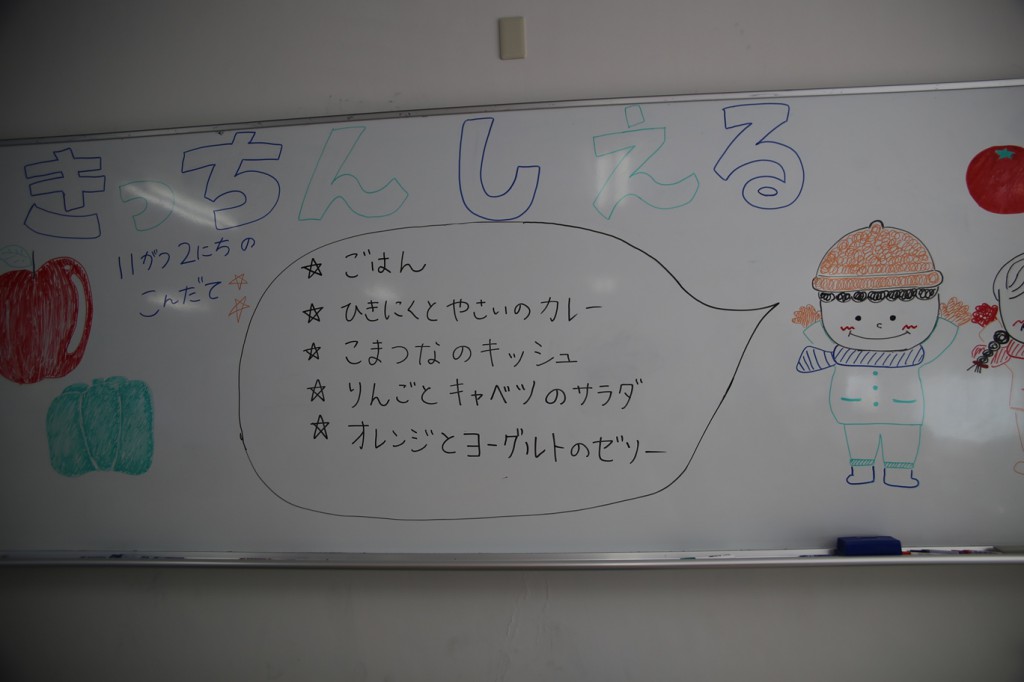 きっちんしえる
11がつ2にちの
こんだて☆☆
☆ ごはん
☆ ひきにくとやさいのカレー
☆ こまつなのキッシュ
☆ りんごとキャベツのサラダ
☆ オレンジとヨーグルトのゼリー